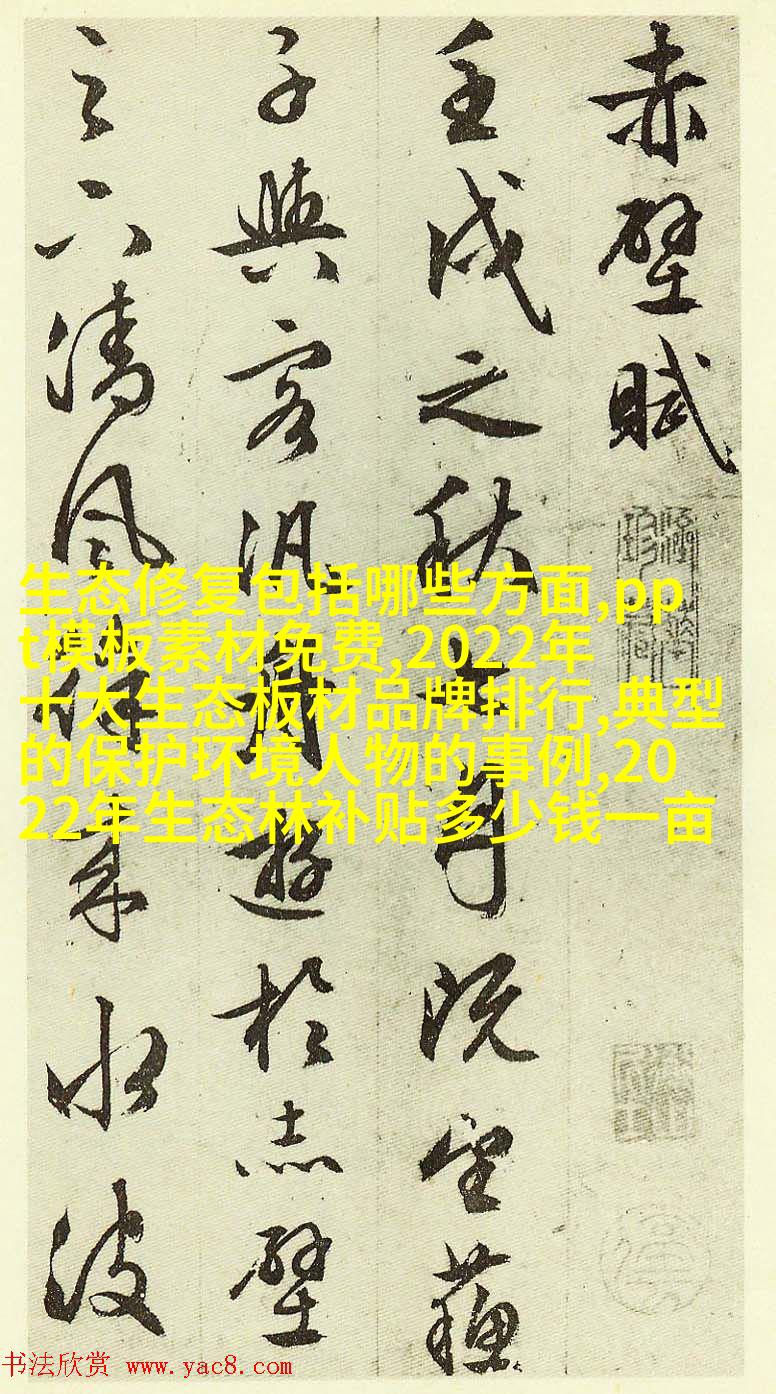 赤壁賦
壬戌之秋七月既望蘇
子與客汎舟遊於赤壁
之下清風徐來水波
生态修复包括哪些方面,pp
t模板素材免费,2022年
十大生态板材品牌排行,典型
的保护环境人物的事例,20
22年生态林补贴多少钱一亩
书法欣赏 www.yac8.com